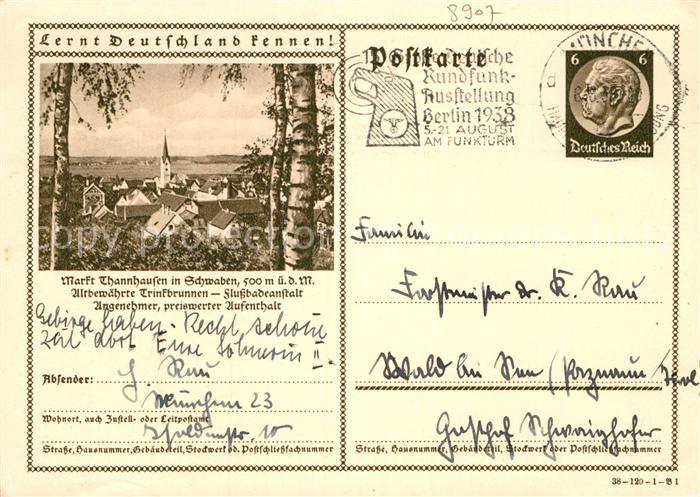 8907
Lernt Deutschland kennen!
Postkarte
Deutsche
Rundfunk-
Ausstellung
Berlin 1938
5.-21. AUGUST
AM FUNKTURM
MÜNCHEN
6 6
Deutsches Reich
Markt Thannhausen in Schwaben, 500 m ü. d. M.
Altbewährte Trinkbrunnen — Flußbadeanstalt
Angenehmer, preiswerter Aufenthalt
Gebirge haben. Recht schöne
Zeit dort. Eure
Absender: Rau
München 23
Wohnort, auch Zustell- oder Leitpostamt
10
Straße, Hausnummer, Gebäudeteil, Stockwerk od. Postschließfachnummer
Familie
Forstmeister Dr. K. Rau
Wald bei
Gasthof Schwaighofer
Straße, Hausnummer, Gebäudeteil, Stockwerk oder Postschließfachnummer
38-120-1-B1